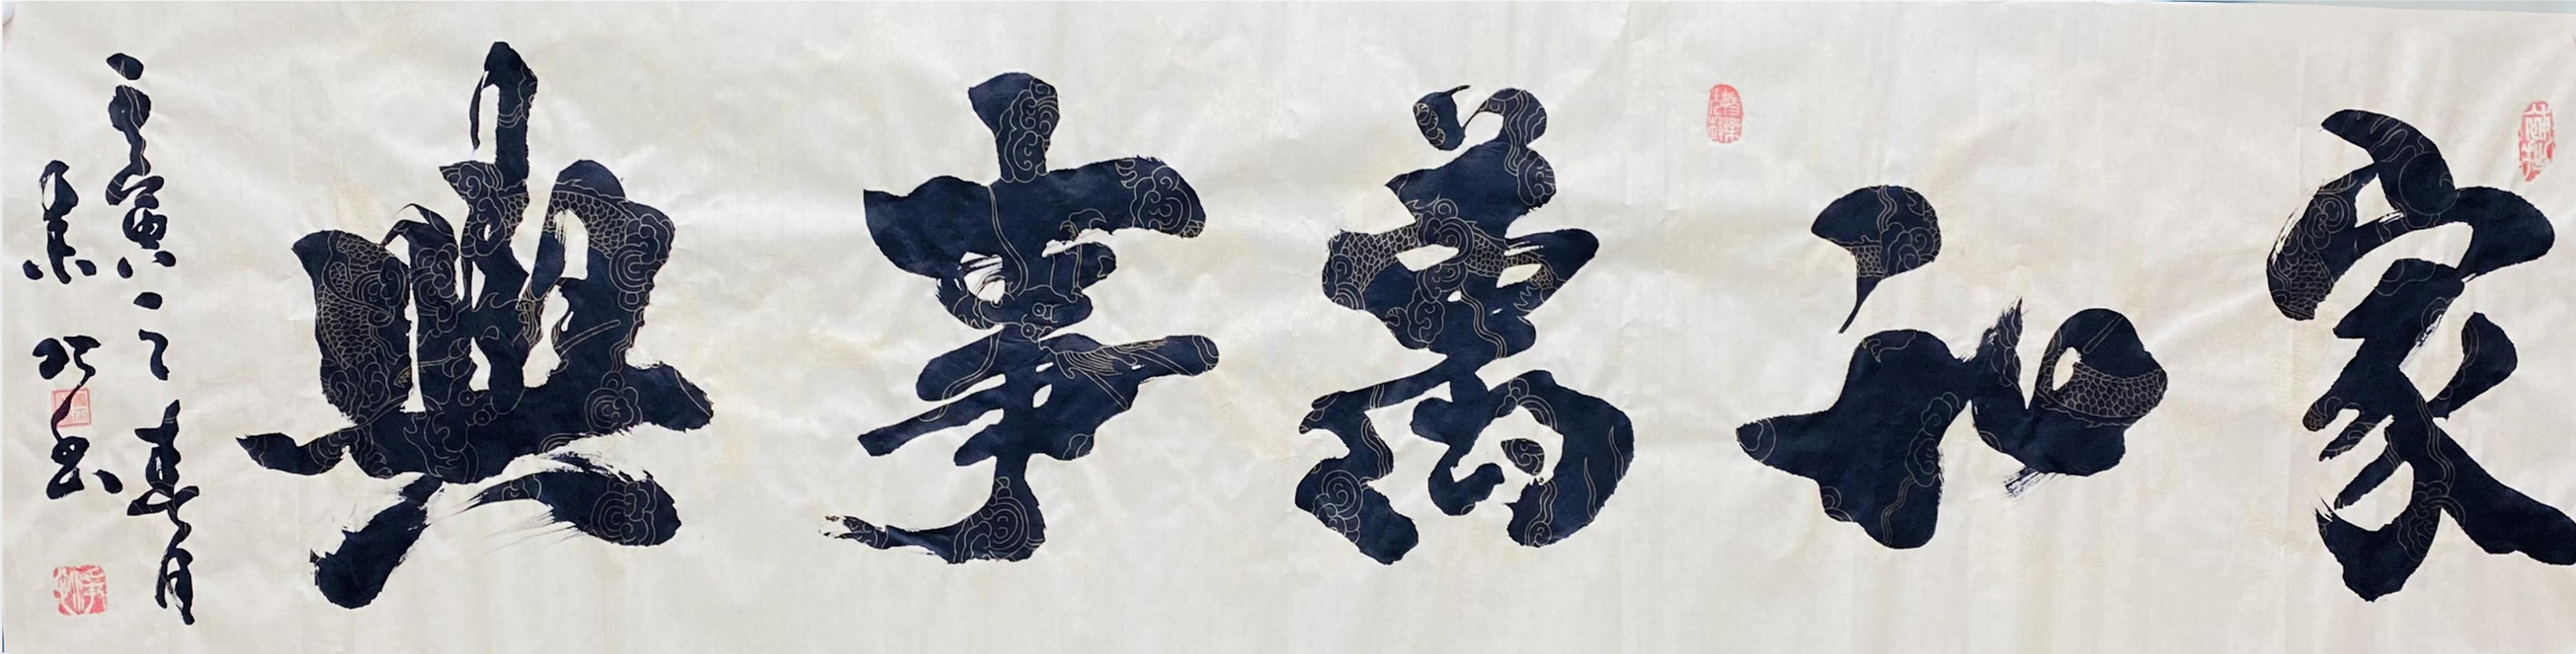 家和萬事興
壬寅之春月
书